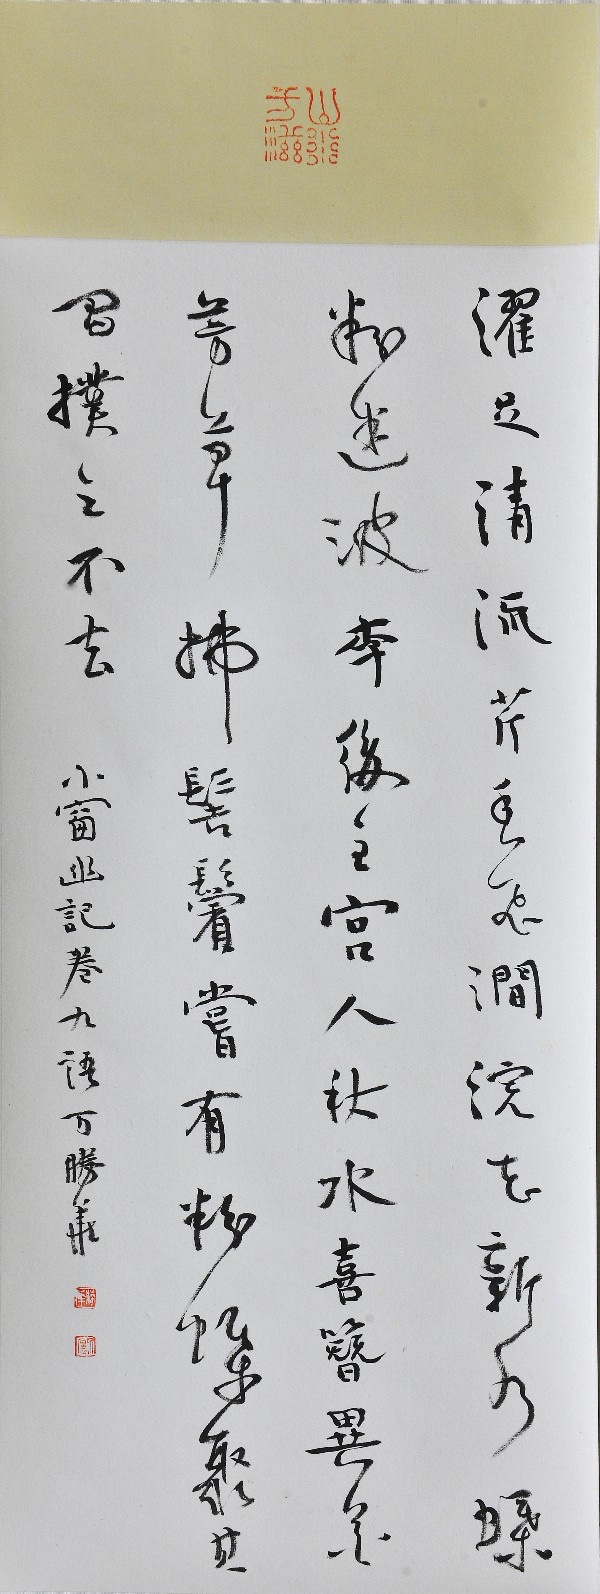 濯足清流芹香飛澗浣花新水蝶
粉迷波李後主宮人秋水喜簪異花
芳草拂髻鬢嘗有粉蝶聚其
間撲之不去 小窗幽記卷九語 勝義